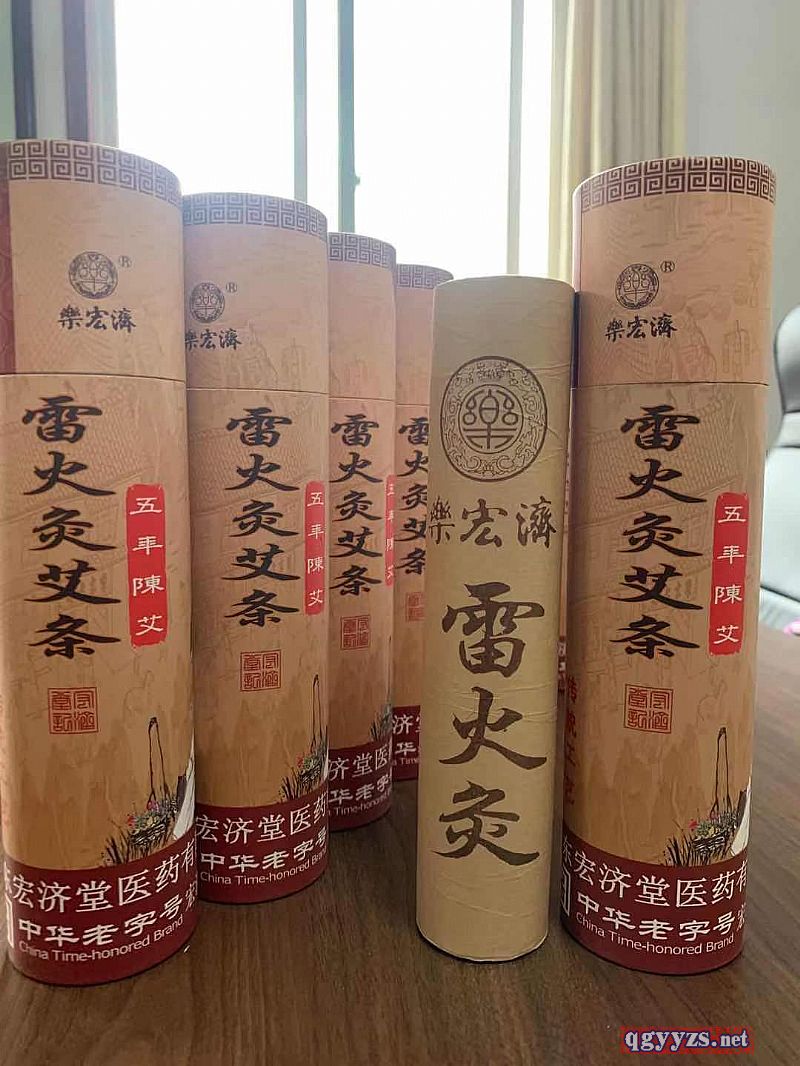 樂宏濟®
雷火灸艾条
五年陳艾
宏济堂医药有
中华老字号
China Time-honored Brand
樂宏濟®
雷火灸艾条
五年陳艾
宏济堂医药
中华老字号
China Time-honored Brand
雷火灸艾条
五年陳艾
济堂医
中华老
China Time-honored
雷火灸艾条
济
中华
樂
樂宏濟
雷火灸
樂宏濟®
雷火灸艾条
五年陳艾
传统工艺
东宏济堂医药有
中华老字号
China Time-honored Brand
qgyyzs.net